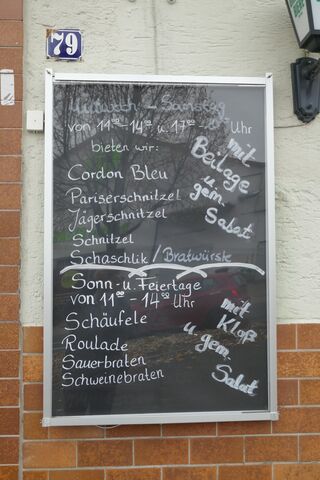 79
Mittwoch - Samstag
von 11⁰⁰-14⁰⁰ u. 17⁰⁰ Uhr
bieten wir:
Cordon Bleu
Pariserschnitzel
Jägerschnitzel
Schnitzel
Schaschlik / Bratwürste
mit
Beilage
u.
gem.
Salat
Sonn- u. Feiertage
von 11⁰⁰ - 14⁰⁰ Uhr
Schäufele
Roulade
Sauerbraten
Schweinebraten
mit
Kloß
u. gem.
Salat